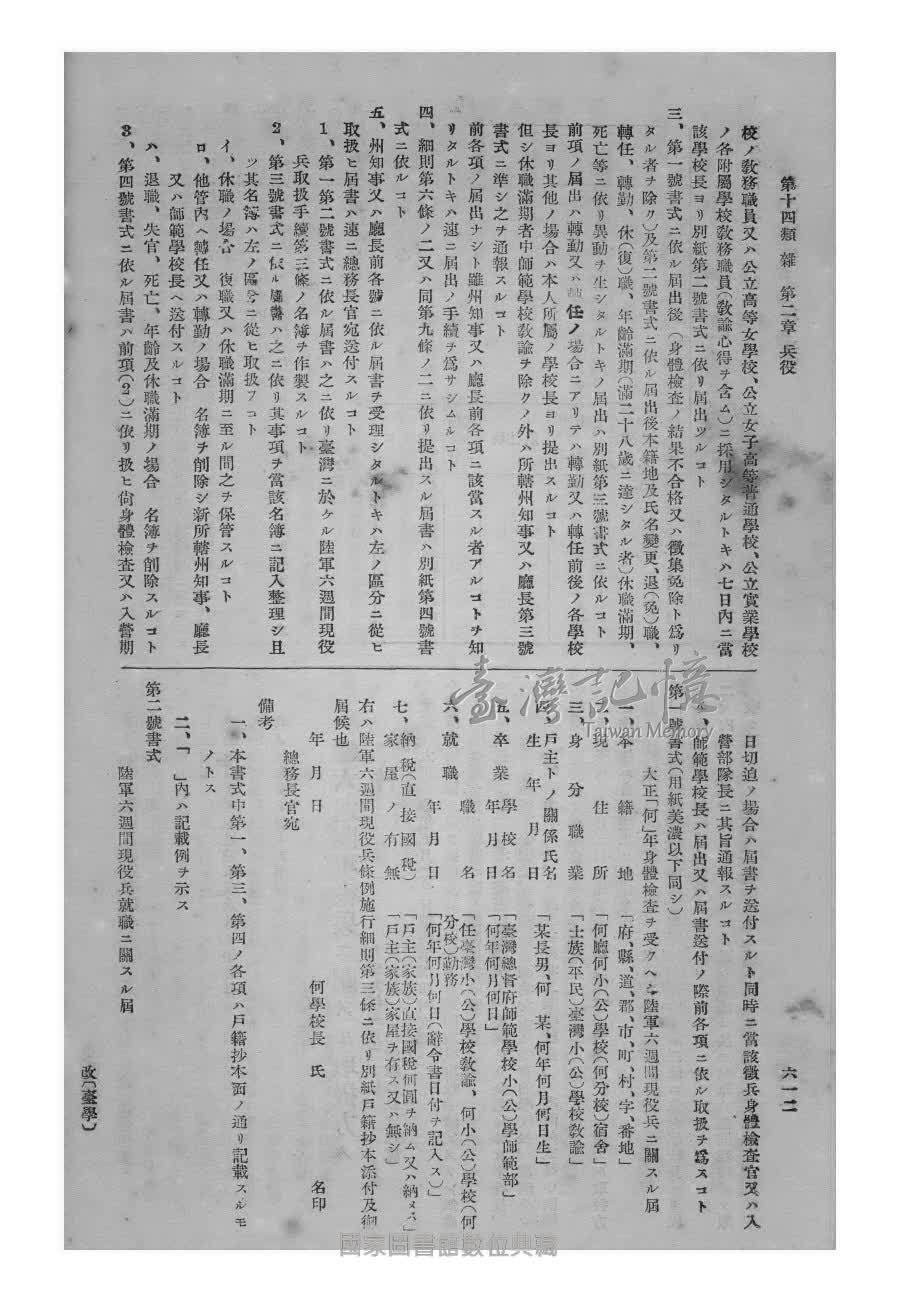 第十四類 雜 第二章 兵役
六一二
校ノ敎務職員又ハ公立高等女學校、公立女子高等普通學校、公立實業學校
ノ各附屬學校敎務職員(敎諭心得ヲ含ム)ニ採用シタルトキハ七日內ニ當
該學校長ヨリ別紙第二號書式ニ依リ屆出ツルコト
三、第一號書式ニ依ル屆出後(身體檢査ノ結果不合格又ハ徵集免除ト爲リ
タル者ヲ除ク)及第二號書式ニ依ル屆出後本籍地及氏名變更、退(免)職、
轉任、轉勤、休(復)職、年齡滿期(滿二十八歲ニ達シタル者)休職滿期、
死亡等ニ依リ異動ヲ生シタルトキノ屆出ハ別紙第三號書式ニ依ルコト
前項ノ屆出ハ轉勤又ハ轉任ノ場合ニアリテハ轉勤又ハ轉任前後ノ各學校
長ヨリ其他ノ場合ハ本人所屬ノ學校長ヨリ提出スルコト
但シ休職滿期者中師範學校敎諭ヲ除クノ外ハ所轄州知事又ハ廳長第三號
書式ニ準シ之ヲ通報スルコト
前各項ノ屆出ナシト雖州知事又ハ廳長前各項ニ該當スル者アルコトヲ知
リタルトキハ速ニ屆出ノ手續ヲ爲サシムルコト
四、細則第六條ノ二又ハ同第九條ノ二ニ依リ提出スル屆書ハ別紙第四號書
式ニ依ルコト
五、州知事又ハ廳長前各號ニ依ル屆書ヲ受理シタルトキハ左ノ區分ニ從ヒ
取扱ヒ屆書ハ速ニ總務長官宛送付スルコト
1、第一第二號書式ニ依ル屆書ハ之ニ依リ臺灣ニ於ケル陸軍六週間現役
兵取扱手續第三條ノ名簿ヲ作製スルコト
2、第三號書式ニ依ル屆書ハ之ニ依リ其事項ヲ當該名簿ニ記入整理シ且
ツ其名簿ハ左ノ區分ニ從ヒ取扱フコト
イ、休職ノ場合 復職又ハ休職滿期ニ至ル間之ヲ保管スルコト
ロ、他管內ヘ轉任又ハ轉勤ノ場合 名簿ヲ削除シ新所轄州知事、廳長
又ハ師範學校長ヘ送付スルコト
ハ、退職、失官、死亡、年齡及休職滿期ノ場合 名簿ヲ削除スルコト
3、第四號書式ニ依ル屆書ハ前項(2)ニ依リ扱ヒ尙身體檢査又ハ入營期
日切迫ノ場合ハ屆書ヲ送付スルト同時ニ當該徵兵身體檢査官又ハ入
營部隊長ニ其旨通報スルコト
師範學校長ハ屆出又ハ屆書送付ノ際前各項ニ依ル取扱ヲ爲スコト
第一號書式(用紙美濃以下同シ)
大正「何」年身體檢査ヲ受クヘキ陸軍六週間現役兵ニ關スル屆
一、本籍地 「府、縣、道、郡、市、町、村、字、番地」
二、現住所 「何廳何小(公)學校(何分校)宿舍」
三、身分職業 「士族(平民)臺灣小(公)學校敎諭」
四、戶主トノ關係氏名 生年月日 「某長男、何 某、何年何月何日生」
五、卒業 學校名 「臺灣總督府師範學校小(公)學師範部」
年月日 「何年何月何日」
六、就職 職名 「任臺灣小(公)學校敎諭、何小(公)學校(何
分校)勤務
年月日 「何年何月何日(辭令書日付ヲ記入ス)」
七、納稅(直接國稅) 「戶主(家族)直接國稅何圓ヲ納ム又ハ納メス」
家屋ノ有無 「戶主(家族)家屋ヲ有ス又ハ無シ」
右ハ陸軍六週間現役兵條例施行細則第三條ニ依リ別紙戶籍抄本添付及御
屆候也
年 月 日 何學校長 氏 名印
總務長官宛
備考
一、本書式中第一、第三、第四ノ各項ハ戶籍抄本面ノ通リ記載スルモ
ノトス
二、「 」內ハ記載例ヲ示ス
第二號書式
陸軍六週間現役兵就職ニ關スル屆
改(臺學)
臺灣記憶
Taiwan Memory
國家圖書館數位典藏